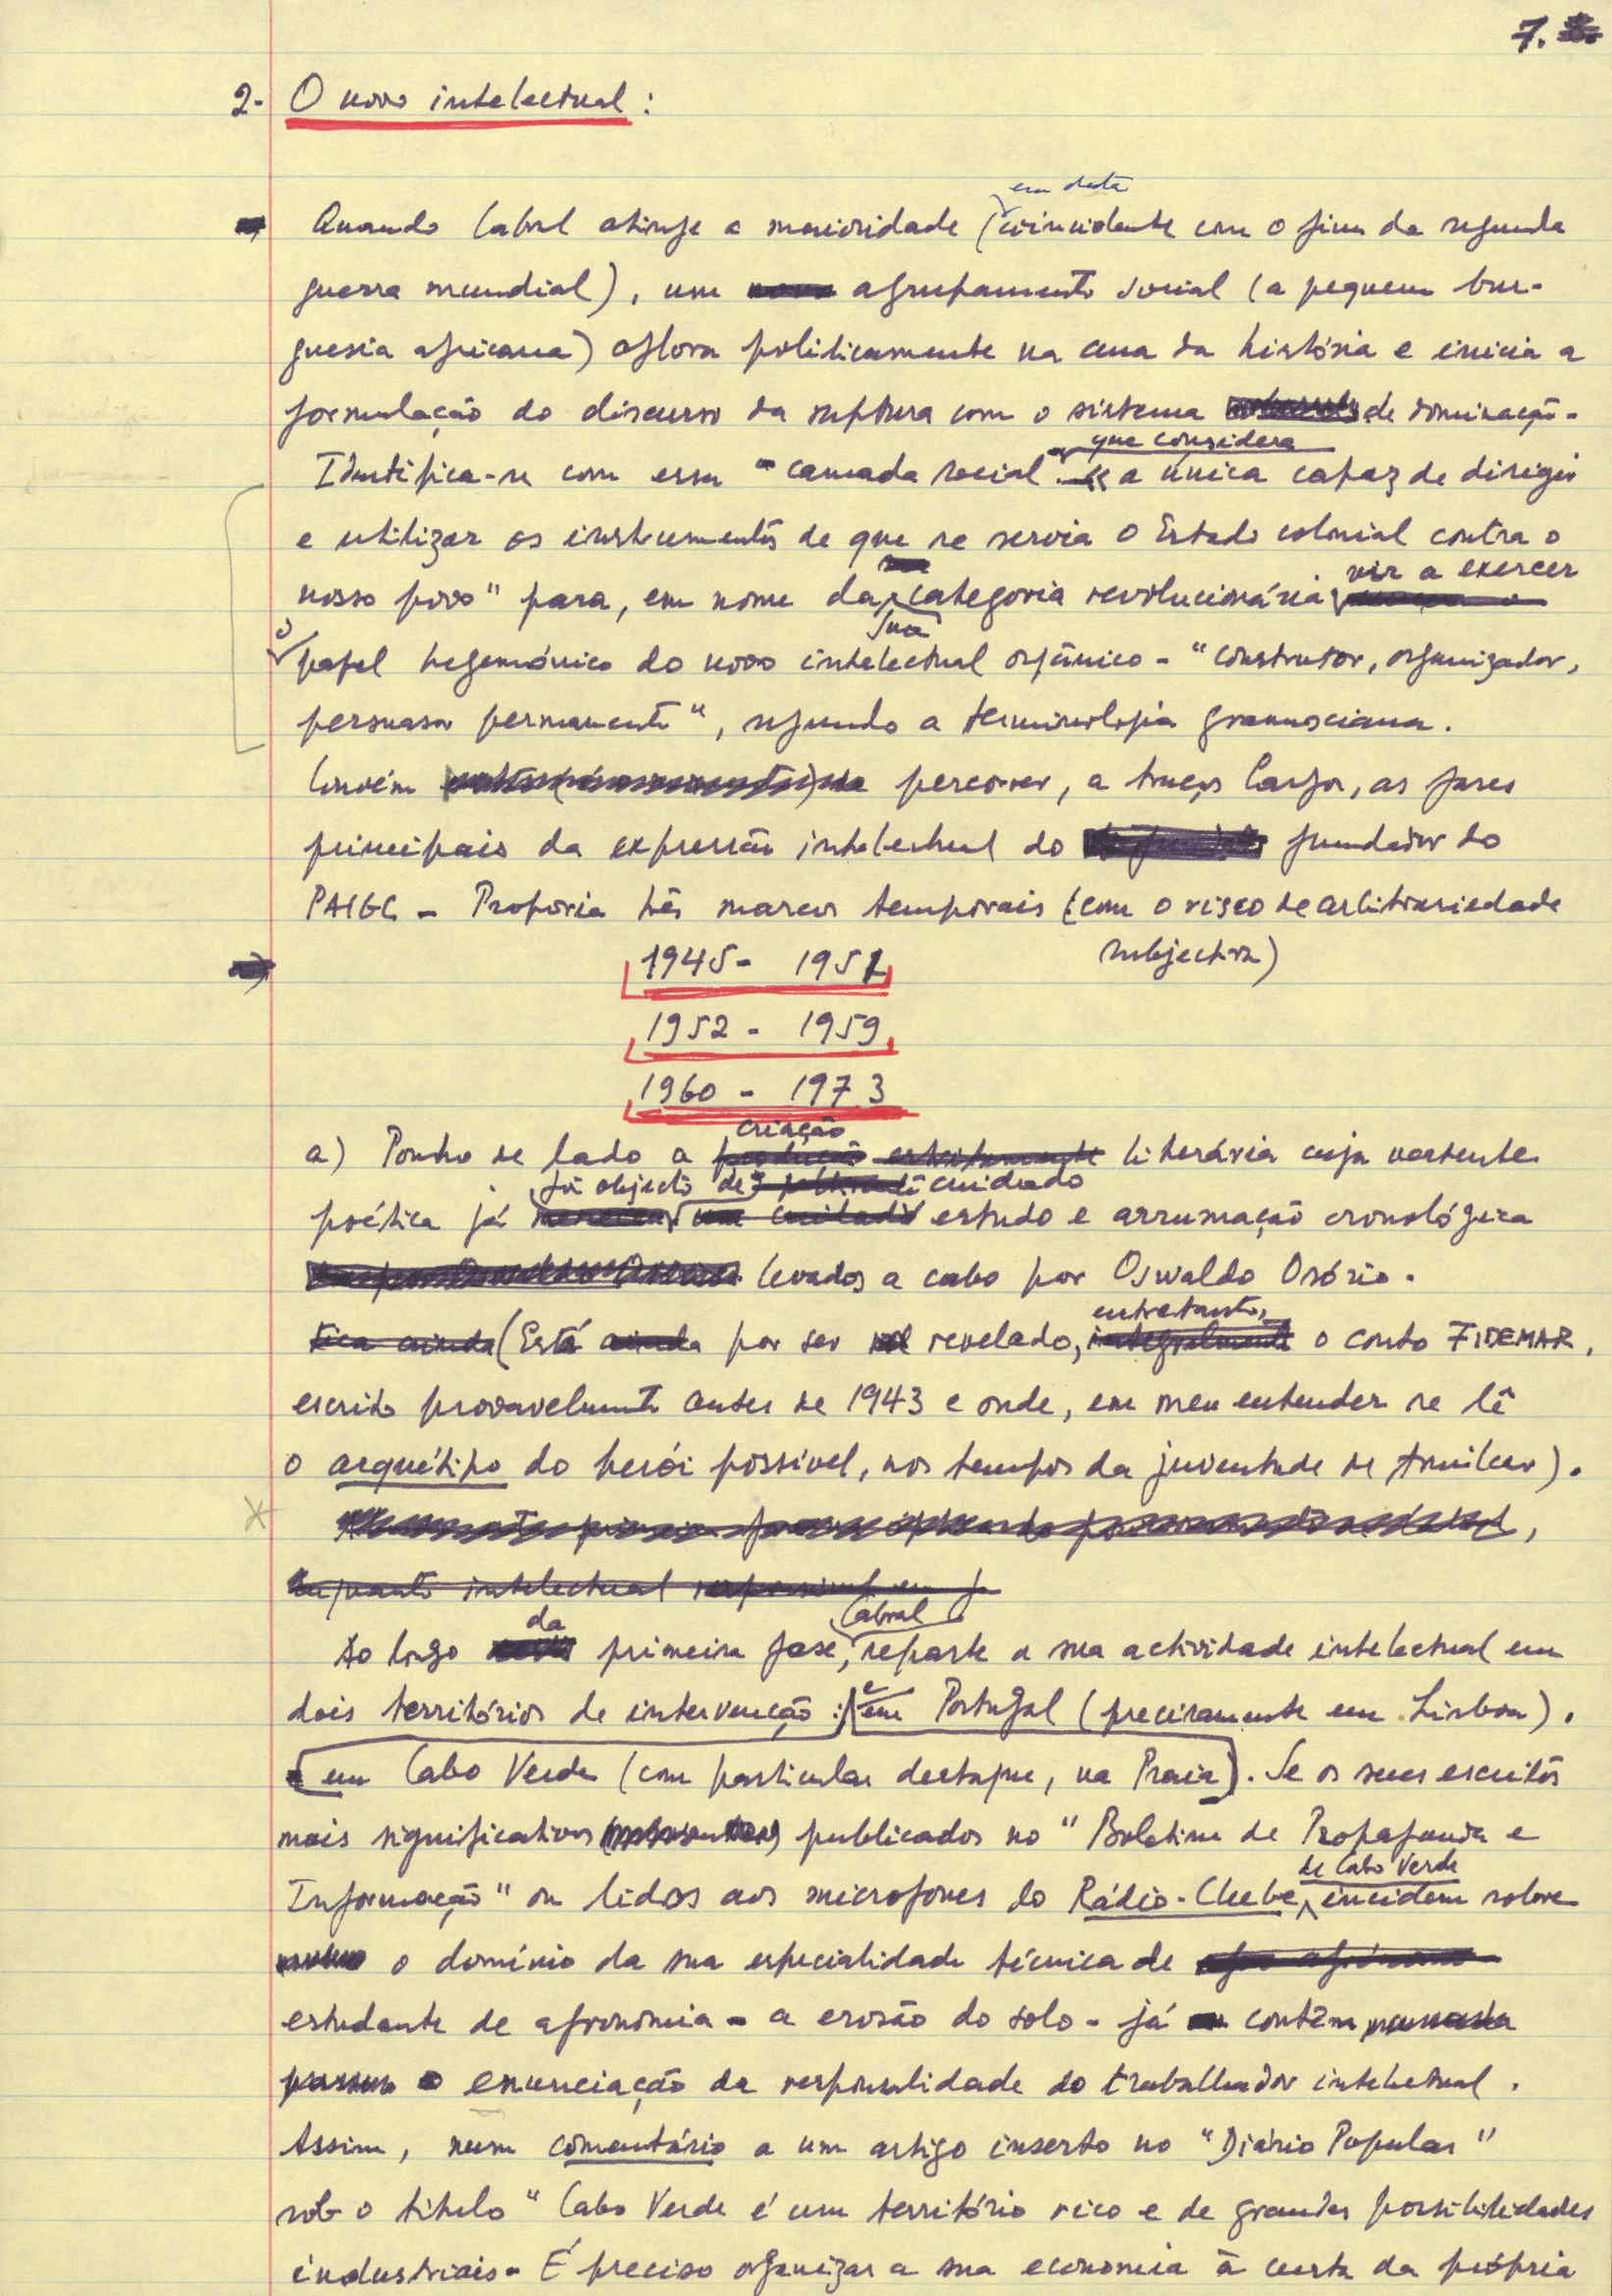 7.
2- O novo intelectual :
em data
Quando Cabral atinge a maioridade (coincidente com o fim da segunda
guerra mundial), um agrupamento social (a pequena bur-
guesia africana) aflora politicamente na cena da história e inicia a
formulação do discurso da ruptura com o sistema de dominação.
que considera
Identifica-se com essa "camada social a única capaz de dirigir
e utilizar os instrumentos de que se servia o Estado colonial contra o
nosso povo" para, em nome da categoria revolucionária vir a exercer
sua
o papel hegemónico do novo intelectual orgânico - "construtor, organizador,
persuasor permanente", segundo a terminologia gramsciana.
Convém percorrer, a traços largos, as fases
principais da expressão intelectual do fundador do
PAIGC - Proporia três marcos temporais (com o risco de arbitrariedade
subjectiva)
1945 - 1951
1952 - 1959
1960 - 1973
criação
a) Ponho de lado a literária cuja vertente
foi objecto de cuidado
poética já estudo e arrumação cronológica
levados a cabo por Oswaldo Osório.
entretanto,
(Está por ser revelado, o conto FIDEMAR,
escrito provavelmente antes de 1943 e onde, em meu entender se lê
o arquétipo do herói possível, nos tempos da juventude de Amilcar).
enquanto intelectual
da Cabral
Ao longo primeira fase, reparte a sua actividade intelectual em
dois territórios de intervenção : e em Portugal (precisamente em Lisboa).
em Cabo Verde (com particular destaque, na Praia). Se os seus escritos
mais significativos publicados no "Boletim de Propaganda e
de Cabo Verde
Informação" ou lidos aos microfones do Rádio-Clube incidem sobre
o domínio da sua especialidade técnica de
estudante de agronomia - a erosão do solo - já contêm
enunciação da responsalidade do trabalhador intelectual.
Assim, num comentário a um artigo inserto no "Diário Popular"
sob o título "Cabo Verde é um território rico e de grandes possibilidades
industriais. É preciso organizar a sua economia à custa da própria